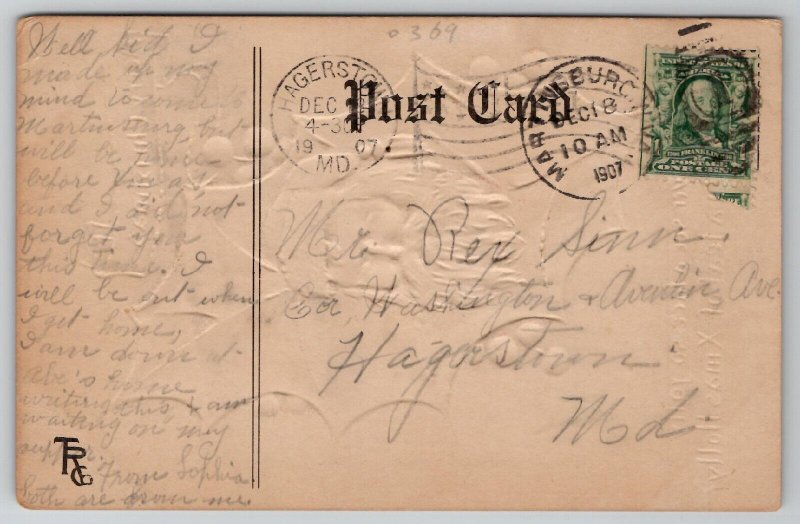 Well kid I
made up my
mind to come to
Martinsburg but
will be home
before Xmas
and I did not
forget you
this time. I
will be out when
I get home,
I am down at
Abe's home
writing this I am
waiting on my
supper.
From Sophia
both are from me.
TRCo
0369
HAGERSTOWN
DEC
4-30
19 07
MD.
Post Card
MARTINSBURG
DEC 18
10 AM
1907
FRANKLIN
POSTAGE
ONE CENT
Mr. Rex Sinn.
Cor, Washington & Ave
Hagerstown
Md.